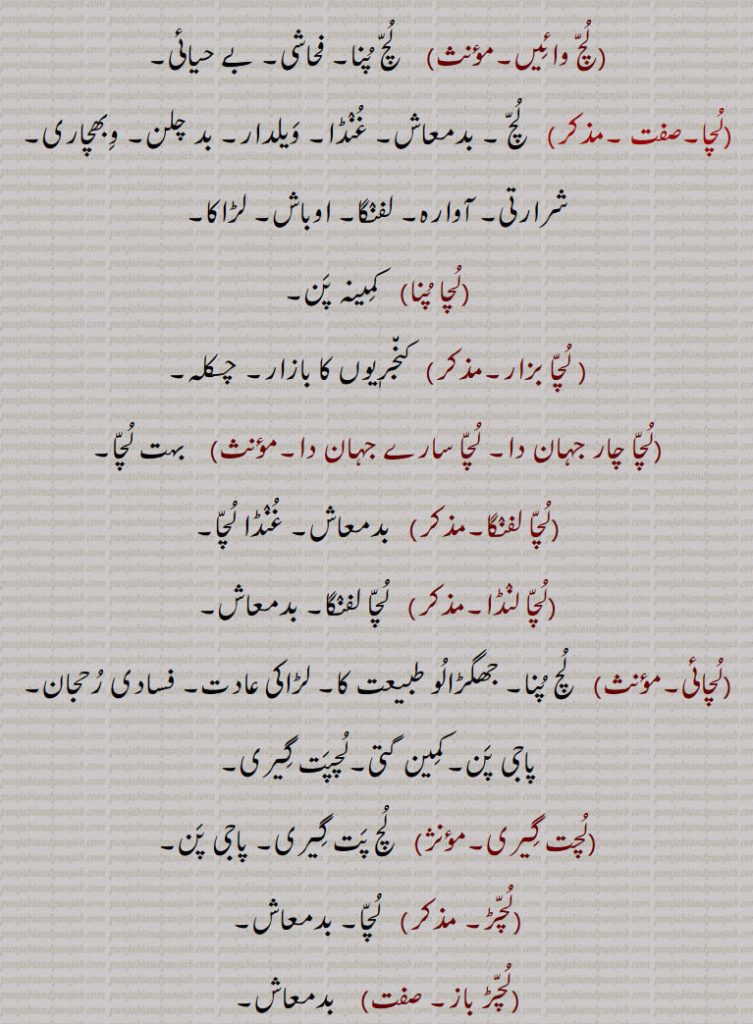 (لُچّ وائِیں۔مؤنث) لُچّ پُنا۔ فحاشی۔ بے حیائی۔
(لُچا۔صفت ۔مذکر) لُچّ ۔ بدمعاش۔ غُنْڈا۔ وَیلدار۔ بد چلن۔ وِبھچاری۔
شرارتی۔ آوارہ۔ لفنْگا۔ اوباش۔ لڑاکا۔
(لُچا پُنا) کمِینہ پَن۔
( لُچّا بزار۔مذکر) کنجّریوں کا بازار۔ چسکلہ۔
(لُچّا چار جہان دا۔ لُچّا سارے جہان دا۔مؤنث) بہت لُچّا۔
(لُچّا لفنْگا۔مذکر) بدمعاش۔ غُنْڈا لُچّا۔
(لُچّا لنْڈا۔مذکر) لُچّا لفنْگا۔ بدمعاش۔
(لُچائی۔مؤنث) لُچ پُنا۔ جھگڑالُو طبیعت کا۔ لڑاکی عادت۔ فسادی رُحجان۔
پاجی پَن۔ کمِین گتی۔ لُچپَت گِیری۔
(لُچت گِیری۔مؤنژ) لُچ پَت گِیری۔ پاجی پَن۔
(لُچّڑ۔ مذکر) لُچّا۔ بدمعاش۔
(لُچّڑ باز۔ صفت) بدمعاش۔